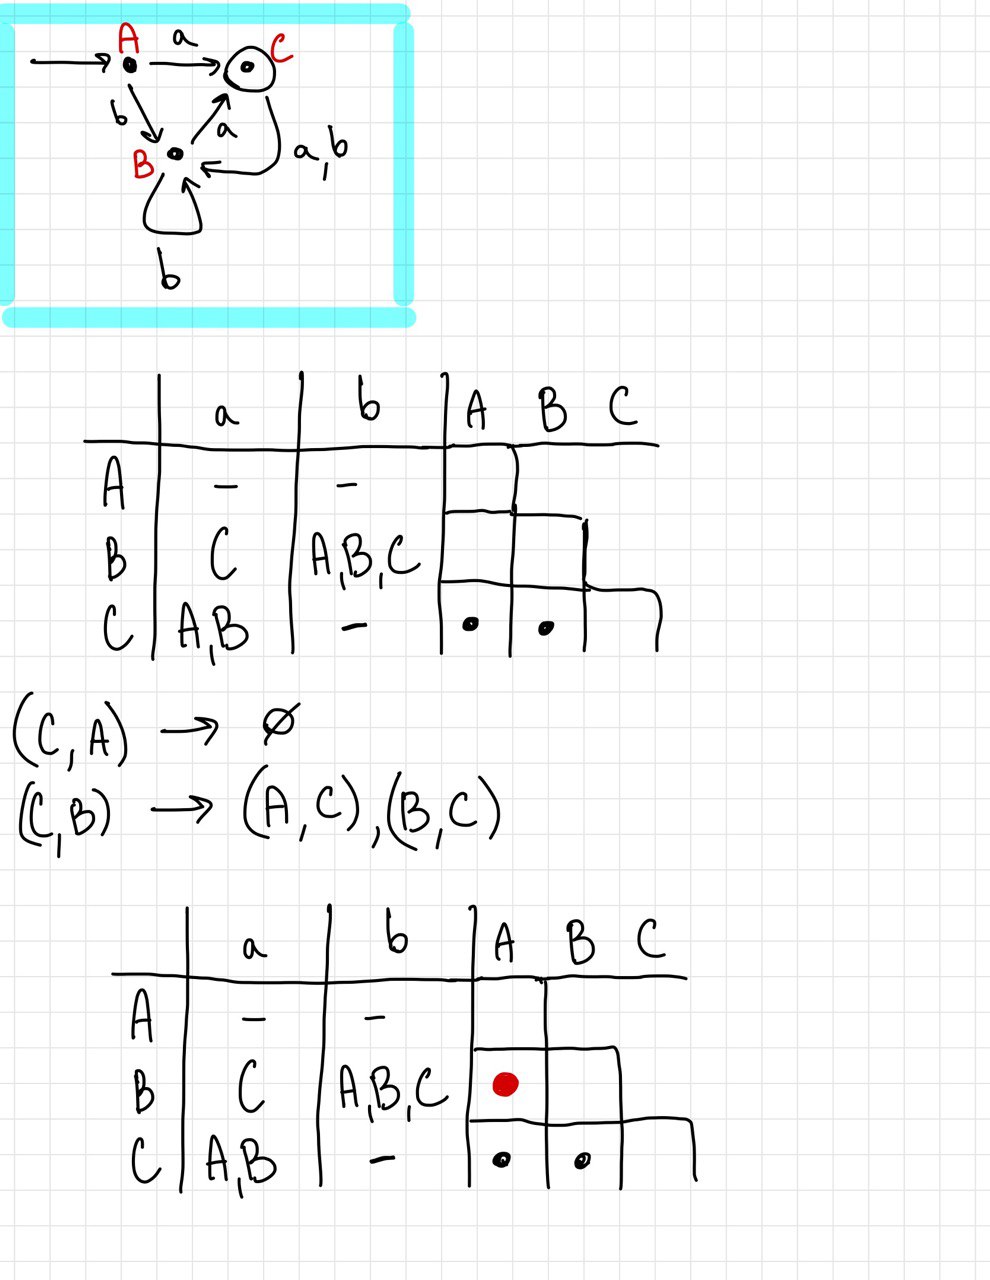 A a C
b a
B a,b
b
a b A B C
A - -
B C A,B,C
C A,B -
(C,A) → ∅
(C,B) → (A,C),(B,C)
a b A B C
A - -
B C A,B,C
C A,B -